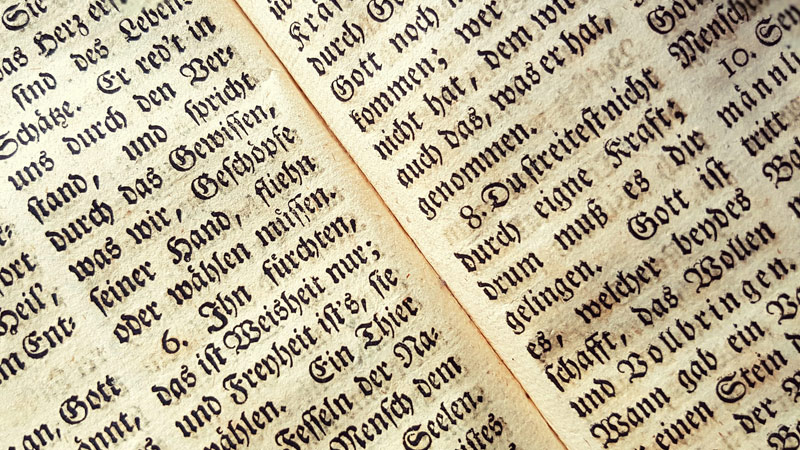 Gott
önnt,
Sie
ſind des Lebens
Schätze. Er red't in
uns durch den Ver⸗
ſtand, und ſpricht
durch das Gewiſſen,
was wir, Geſchöpfe
ſeiner Hand, fliehn
oder wählen müſſen.
6. Ihn fürchten,
das iſt Weisheit nur;
und Freyheit iſts, ſie
wählen. Ein Thier
Feſſeln der Na⸗
Menſch dem
Seelen.
Kraft
durch
Gott noch
kommen; wer
nicht hat, dem
auch das, was er hat,
genommen.
8. Du ſtreiteſt nicht
durch eigne Kraft;
drum muß es die
gelingen. Gott iſt
es, welcher beydes
ſchafft, das Wollen
und Vollbringen.
Wann gab ein
einen Stein
der
10.
tritt